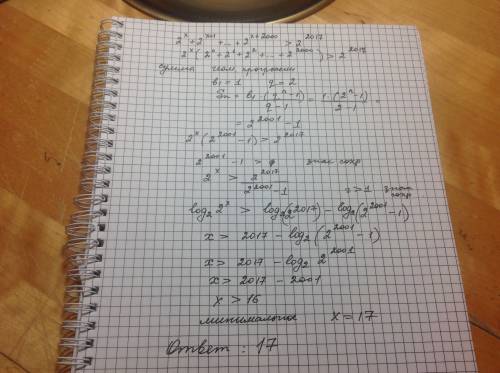 2^x + 2^(x+1) + ... + 2^(x+2000) > 2^2017
2^x (2^0 + 2^1 + 2^2 + ... + 2^2000) > 2^2017
сумма геом. прогрессии
b₁ = 1 q = 2
Sn = b₁ · (q^n - 1) / (q - 1) = 1 · (2^n - 1) / (2 - 1) =
= 2^2001 - 1
2^x (2^2001 - 1) > 2^2017
2^2001 - 1 > φ знак сохр
2^x > 2^2017 / (2^2001 - 1)
2 > 1 знак сохр
log₂ 2^x > log₂(2^2017) - log₂(2^2001 - 1)
x > 2017 - log₂(2^2001 - 1)
x > 2017 - log₂ 2^2001
x > 2017 - 2001
x > 16
минимальное x = 17
Ответ: 17